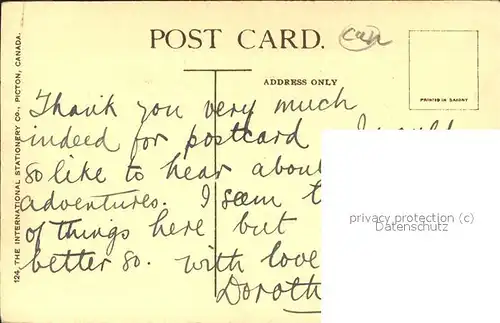 POST CARD.
can
ADDRESS ONLY
PRINTED IN SAXONY
124. THE INTERNATIONAL STATIONERY CO., PICTON, CANADA.
Thank you very much
indeed for postcard
so like to hear about
adventures. I seem
of things here but
better so. with love
Doroth
privacy protection (c)
Datenschutz